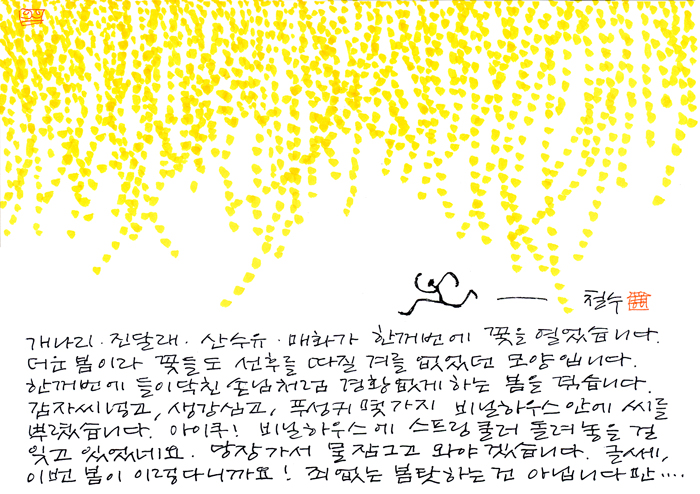 철수
개나리·진달래·산수유·매화가 한꺼번에 꽃을 열었습니다.
더운 봄이라 꽃들도 선후를 따질 겨를 없었던 모양입니다.
한꺼번에 들이닥친 손님처럼 경황없게 하는 봄을 겪습니다.
감자씨 넣고, 생강심고, 푸성귀 몇가지 비닐하우스 안에 씨를
뿌렸습니다. 아이쿠! 비닐하우스에 스프링쿨러 돌려놓은 걸
잊고 있었네요. 당장가서 물잠그고 와야겠습니다. 글쎄,
이번 봄이 이렇다니까요! 죄없는 봄탓하는건 아닙니다만....